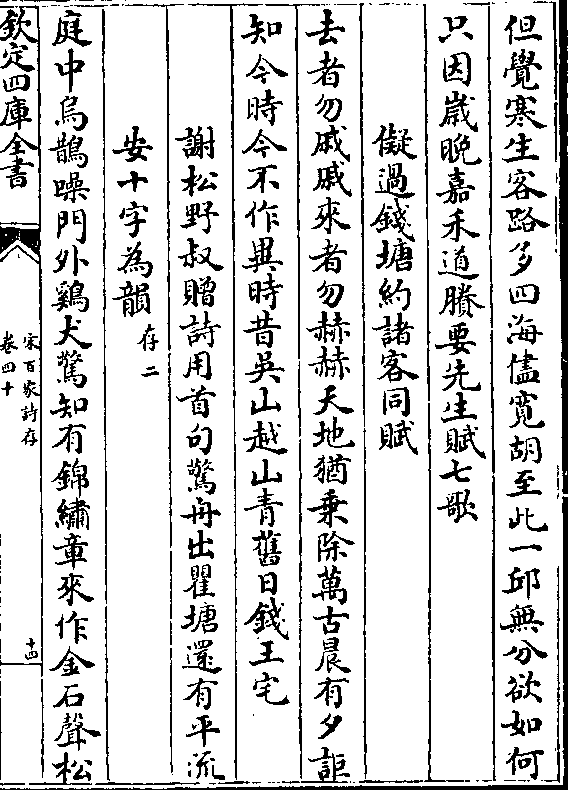 但覺寒生客路多四海儘寛胡至此一邱無分欲如何
只因嵗晚嘉禾道賸要先生賦七歌
儗過錢塘約諸客同賦
去者勿戚戚來者勿赫赫天地猶乗除萬古晨有夕詎
知今時今不作異時昔吳山越山青舊日錢王宅
謝松野叔贈詩用首句驚舟出瞿塘還有平流
安十字為韻存二
庭中烏鵲噪門外鷄犬驚知有錦繡章來作金石聲松
欽定四庫全書
宋百家詩存
卷四十
十四